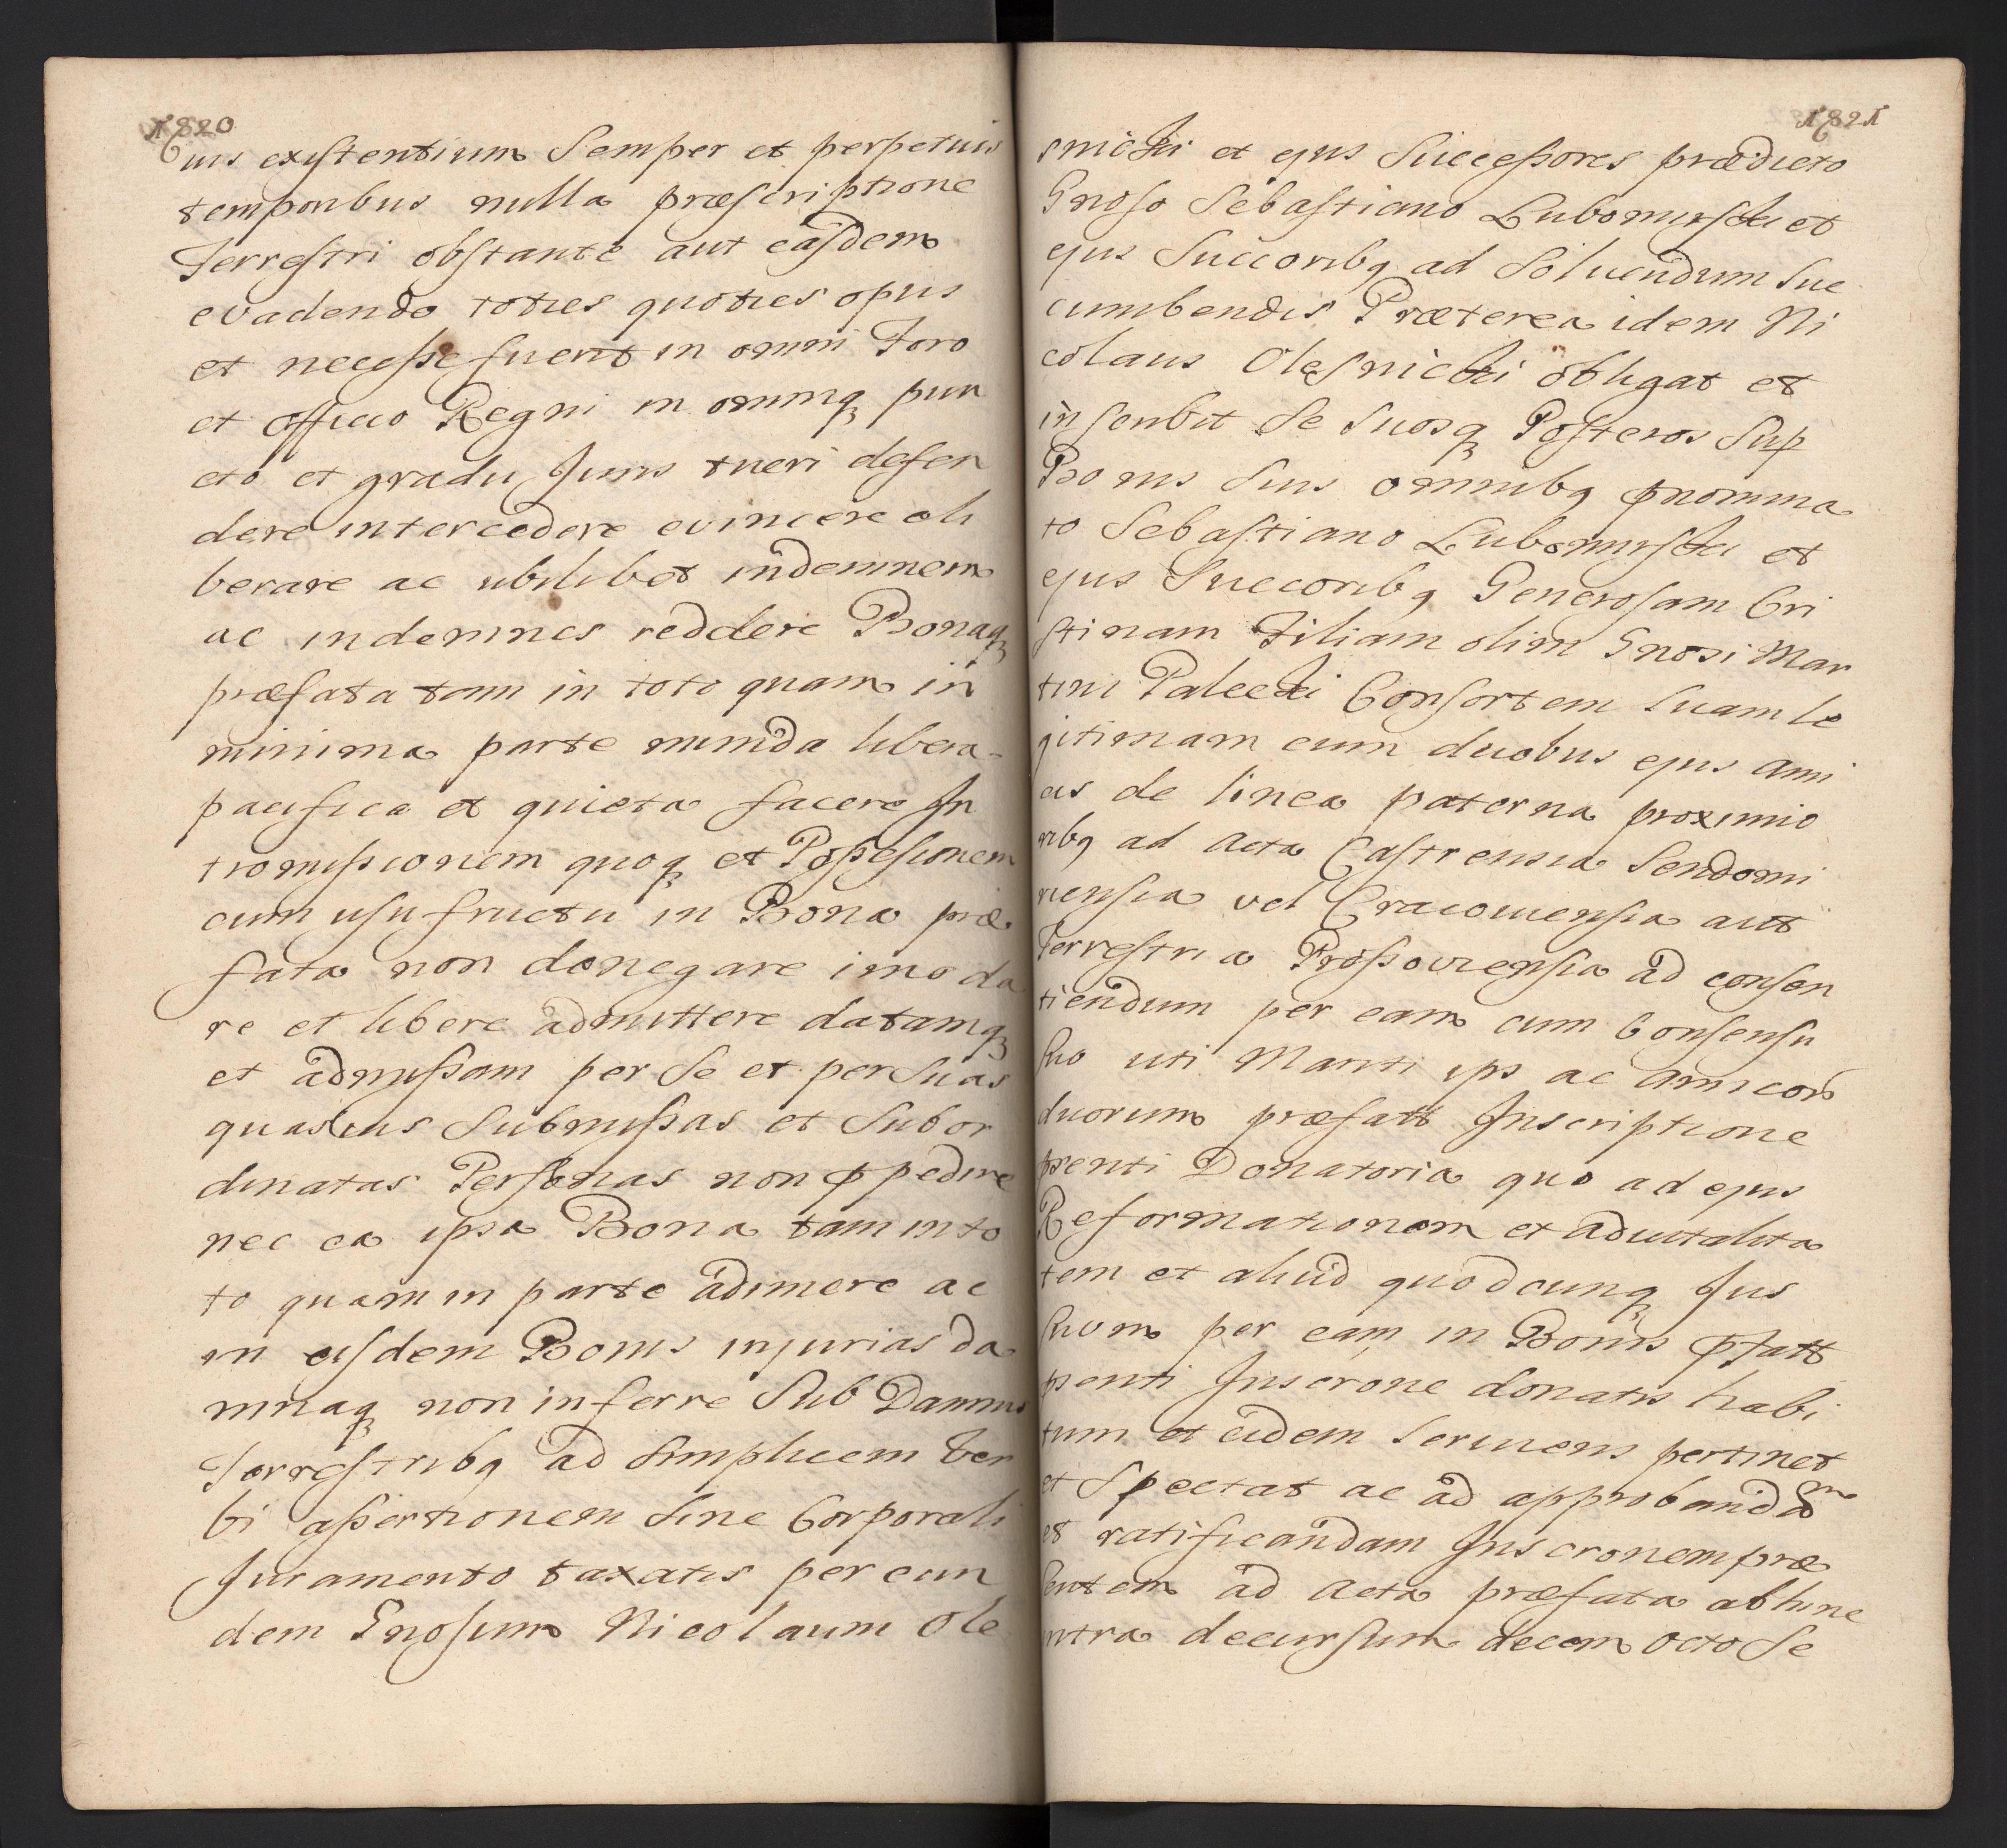 1820
uis existentium Semper et perpetuis
temporibus nulla præscriptione
Terrestri obstante aut easdem
evadendo toties quoties opus
et necesse fuerit in omni Foro
et officio Regni in omniq, pun
cto et gradu Juris tueri defen
dere intercedere evincere eli
berare ac ubilibet indemnem
ac indemnes reddere Bonaq,
præfata tam in toto quam in
minima parte munda libera
pacifica et quieta facere In
tromissionem quoq, et Possesionem
cum usufructu in Bona præ
fata non denegare imo da
re et libere admittere datamq,
et admissam per Se et per Suas
quasvis Submissas et Subor
dinatas Personas non ppedire
nec ea ipsa Bona tam in to
to quam in parte adimere ac
in eisdem Bonis injurias da
mnaq, non inferre Sub Damnis
Terrestribq ad Simplicem Ver
bi assertionem Sine Corporali
Juramento taxatis per eun
dem Gnosum Nicolaum Ole
1821
snicki et ejus Successores prædicto
Gnoso Sebastiano Lubomirski et
ejus Succoribq ad Solvendum Suc
cumbendis Præterea idem Ni
colaus Olesnicki obligat et
inscribit Se Suosq, Posteros Sup
Bonis Suis omnibq pnomina
to Sebastiano Lubomirski et
ejus Succoribq Generosam Cri
stinam Filiam olim Gnosi Mar
tini Palecki Consortem Suam le
gitimam cum duobus ejus ami
cis de linea paterna proximio
ribq ad Acta Castrensia Sendomi
riensia vel Cracoviensia aut
Terrestria Prossoviensia ad consen
tiendum per eam cum Consensu
Suo uti Mariti ips ac amicor
duorum præfatt Inscriptione
psenti Donatoria quo ad ejus
Reformationem et advitalita
tem et aliud quodcunq, Jus
Suum per eam in Bonis pfatt
psenti Inscrone donatis habi
tum et eidem Serviens pertinet
et Spectat ac ad approbandam
et ratificandam Inscronem præ
sentem ad Acta præfata abhinc
intra decursum decem octo Se